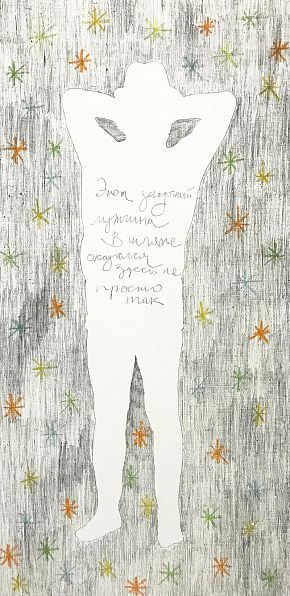 Этот загадочный
мужчина
В шляпе
оказался
здесь не
просто
так